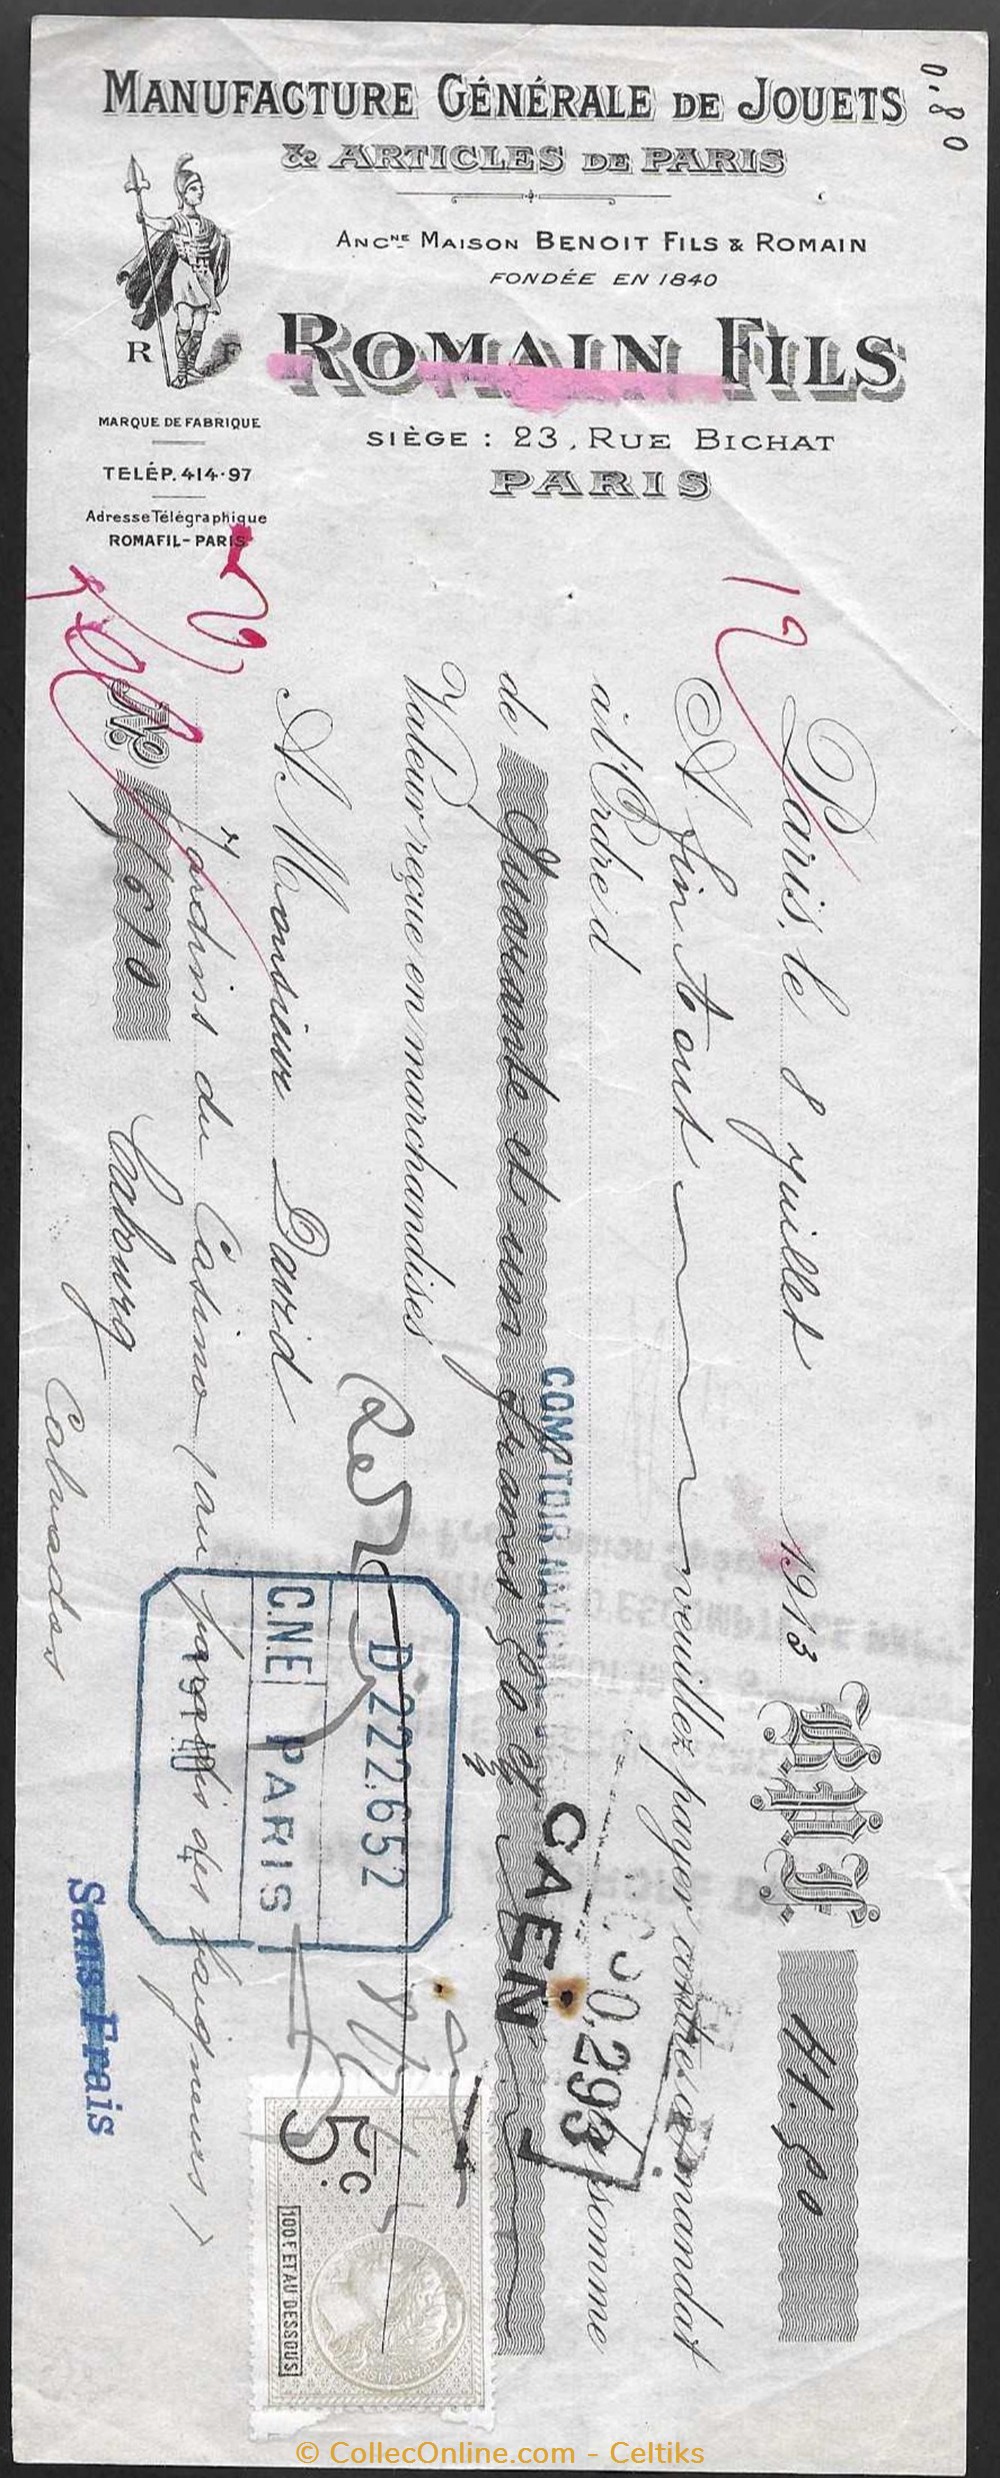 0.80
MANUFACTURE GÉNÉRALE DE JOUETS
& ARTICLES DE PARIS
ANCNE MAISON BENOIT FILS & ROMAIN
FONDÉE EN 1840
ROMAIN FILS
SIÈGE : 23, RUE BICHAT
PARIS
R F
MARQUE DE FABRIQUE
TELÉP. 414-97
Adresse Télégraphique
ROMAFIL-PARIS
Paris, le 8 juillet 1913 B.P.F. 41.50
A fin Août veuillez payer contre ce mandat
à l'Ordre d la somme
de Quarante et un francs 50 c/
Valeur reçue en marchandises
A Monsieur David
Jardins du Casino (au paradis des baigneurs)
No.
Cabourg
Calvados
COMPTOIR
CAEN
D 222.652
C.N.E PARIS
Sans Frais
5c.
100F ET AU DESSOUS
© CollecOnline.com - Celtiks